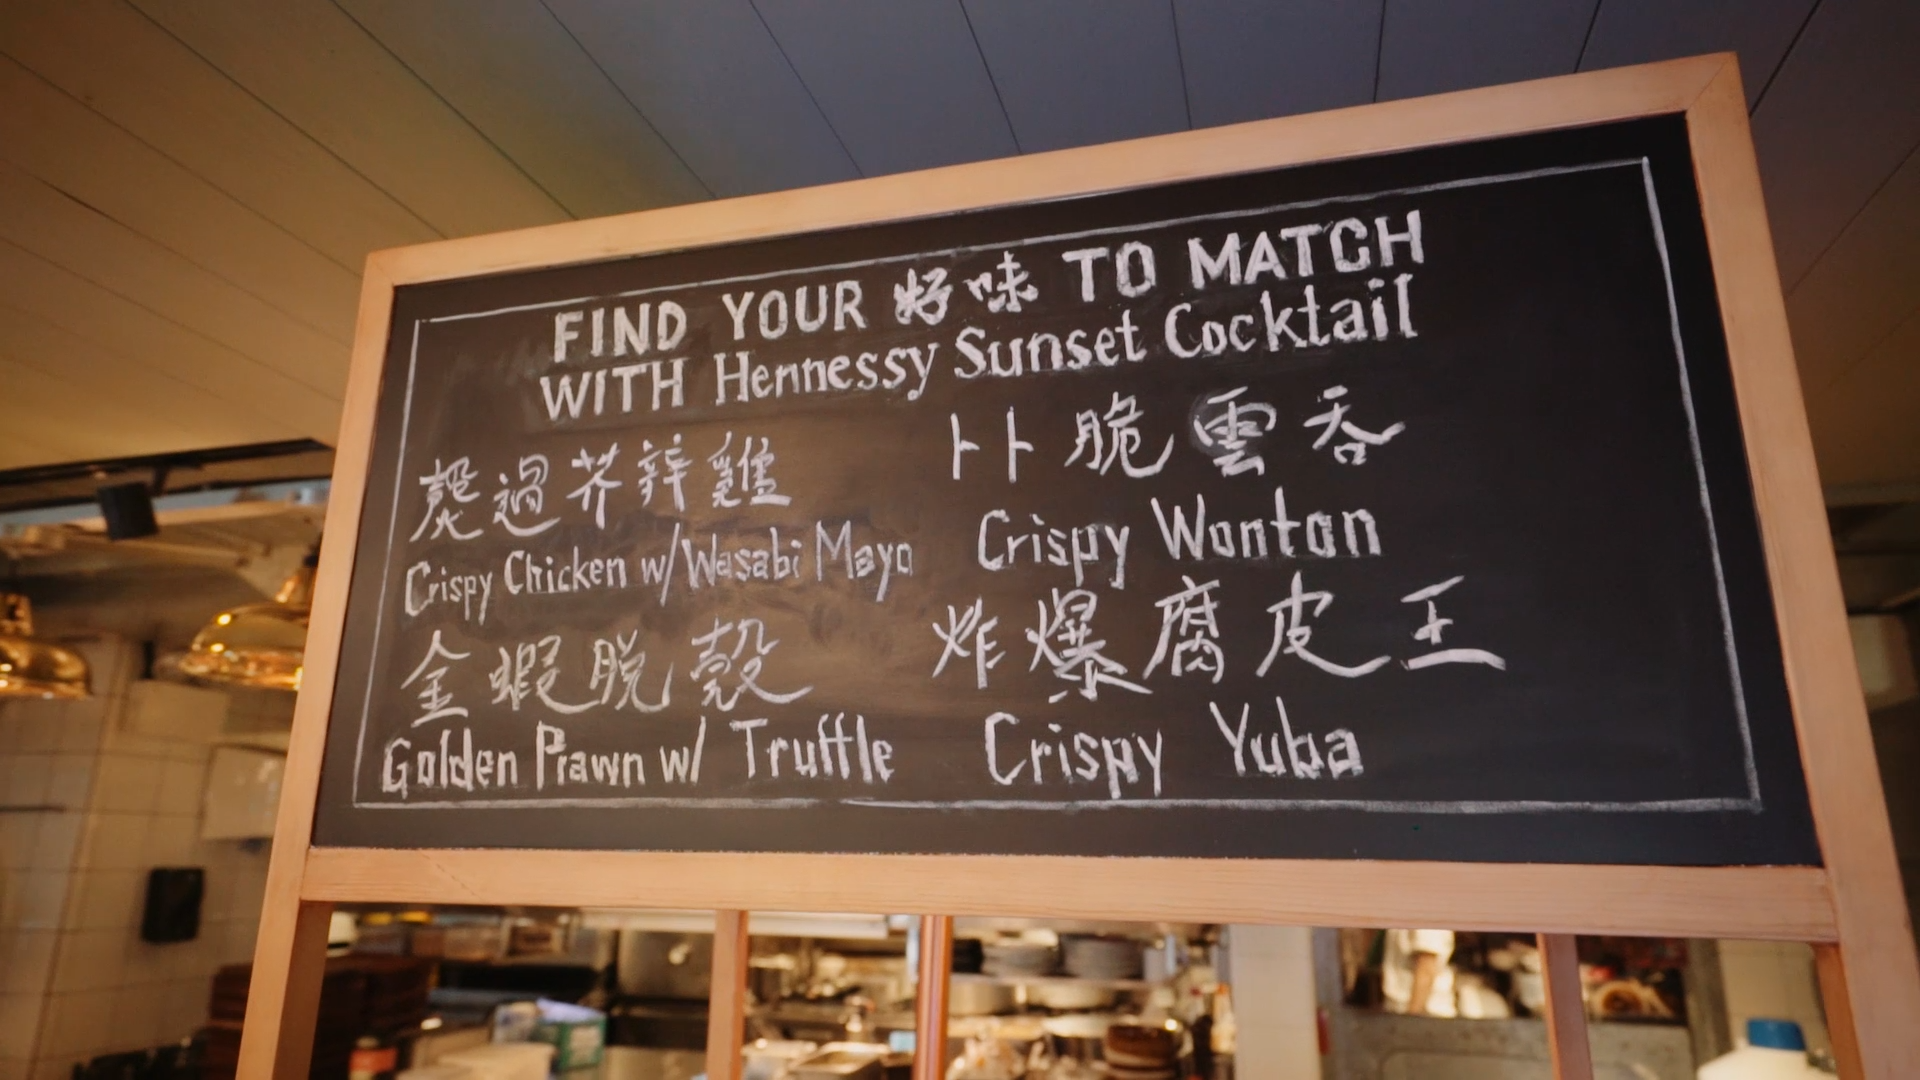 FIND YOUR 好味 TO MATCH
WITH Hennessy Sunset Cocktail
過芥辣雞
Crispy Chicken w/ Wasabi Mayo
金蝦脱殼
Golden Prawn w/ Truffle
卜卜脆雲吞
Crispy Wonton
炸爆腐皮王
Crispy Yuba